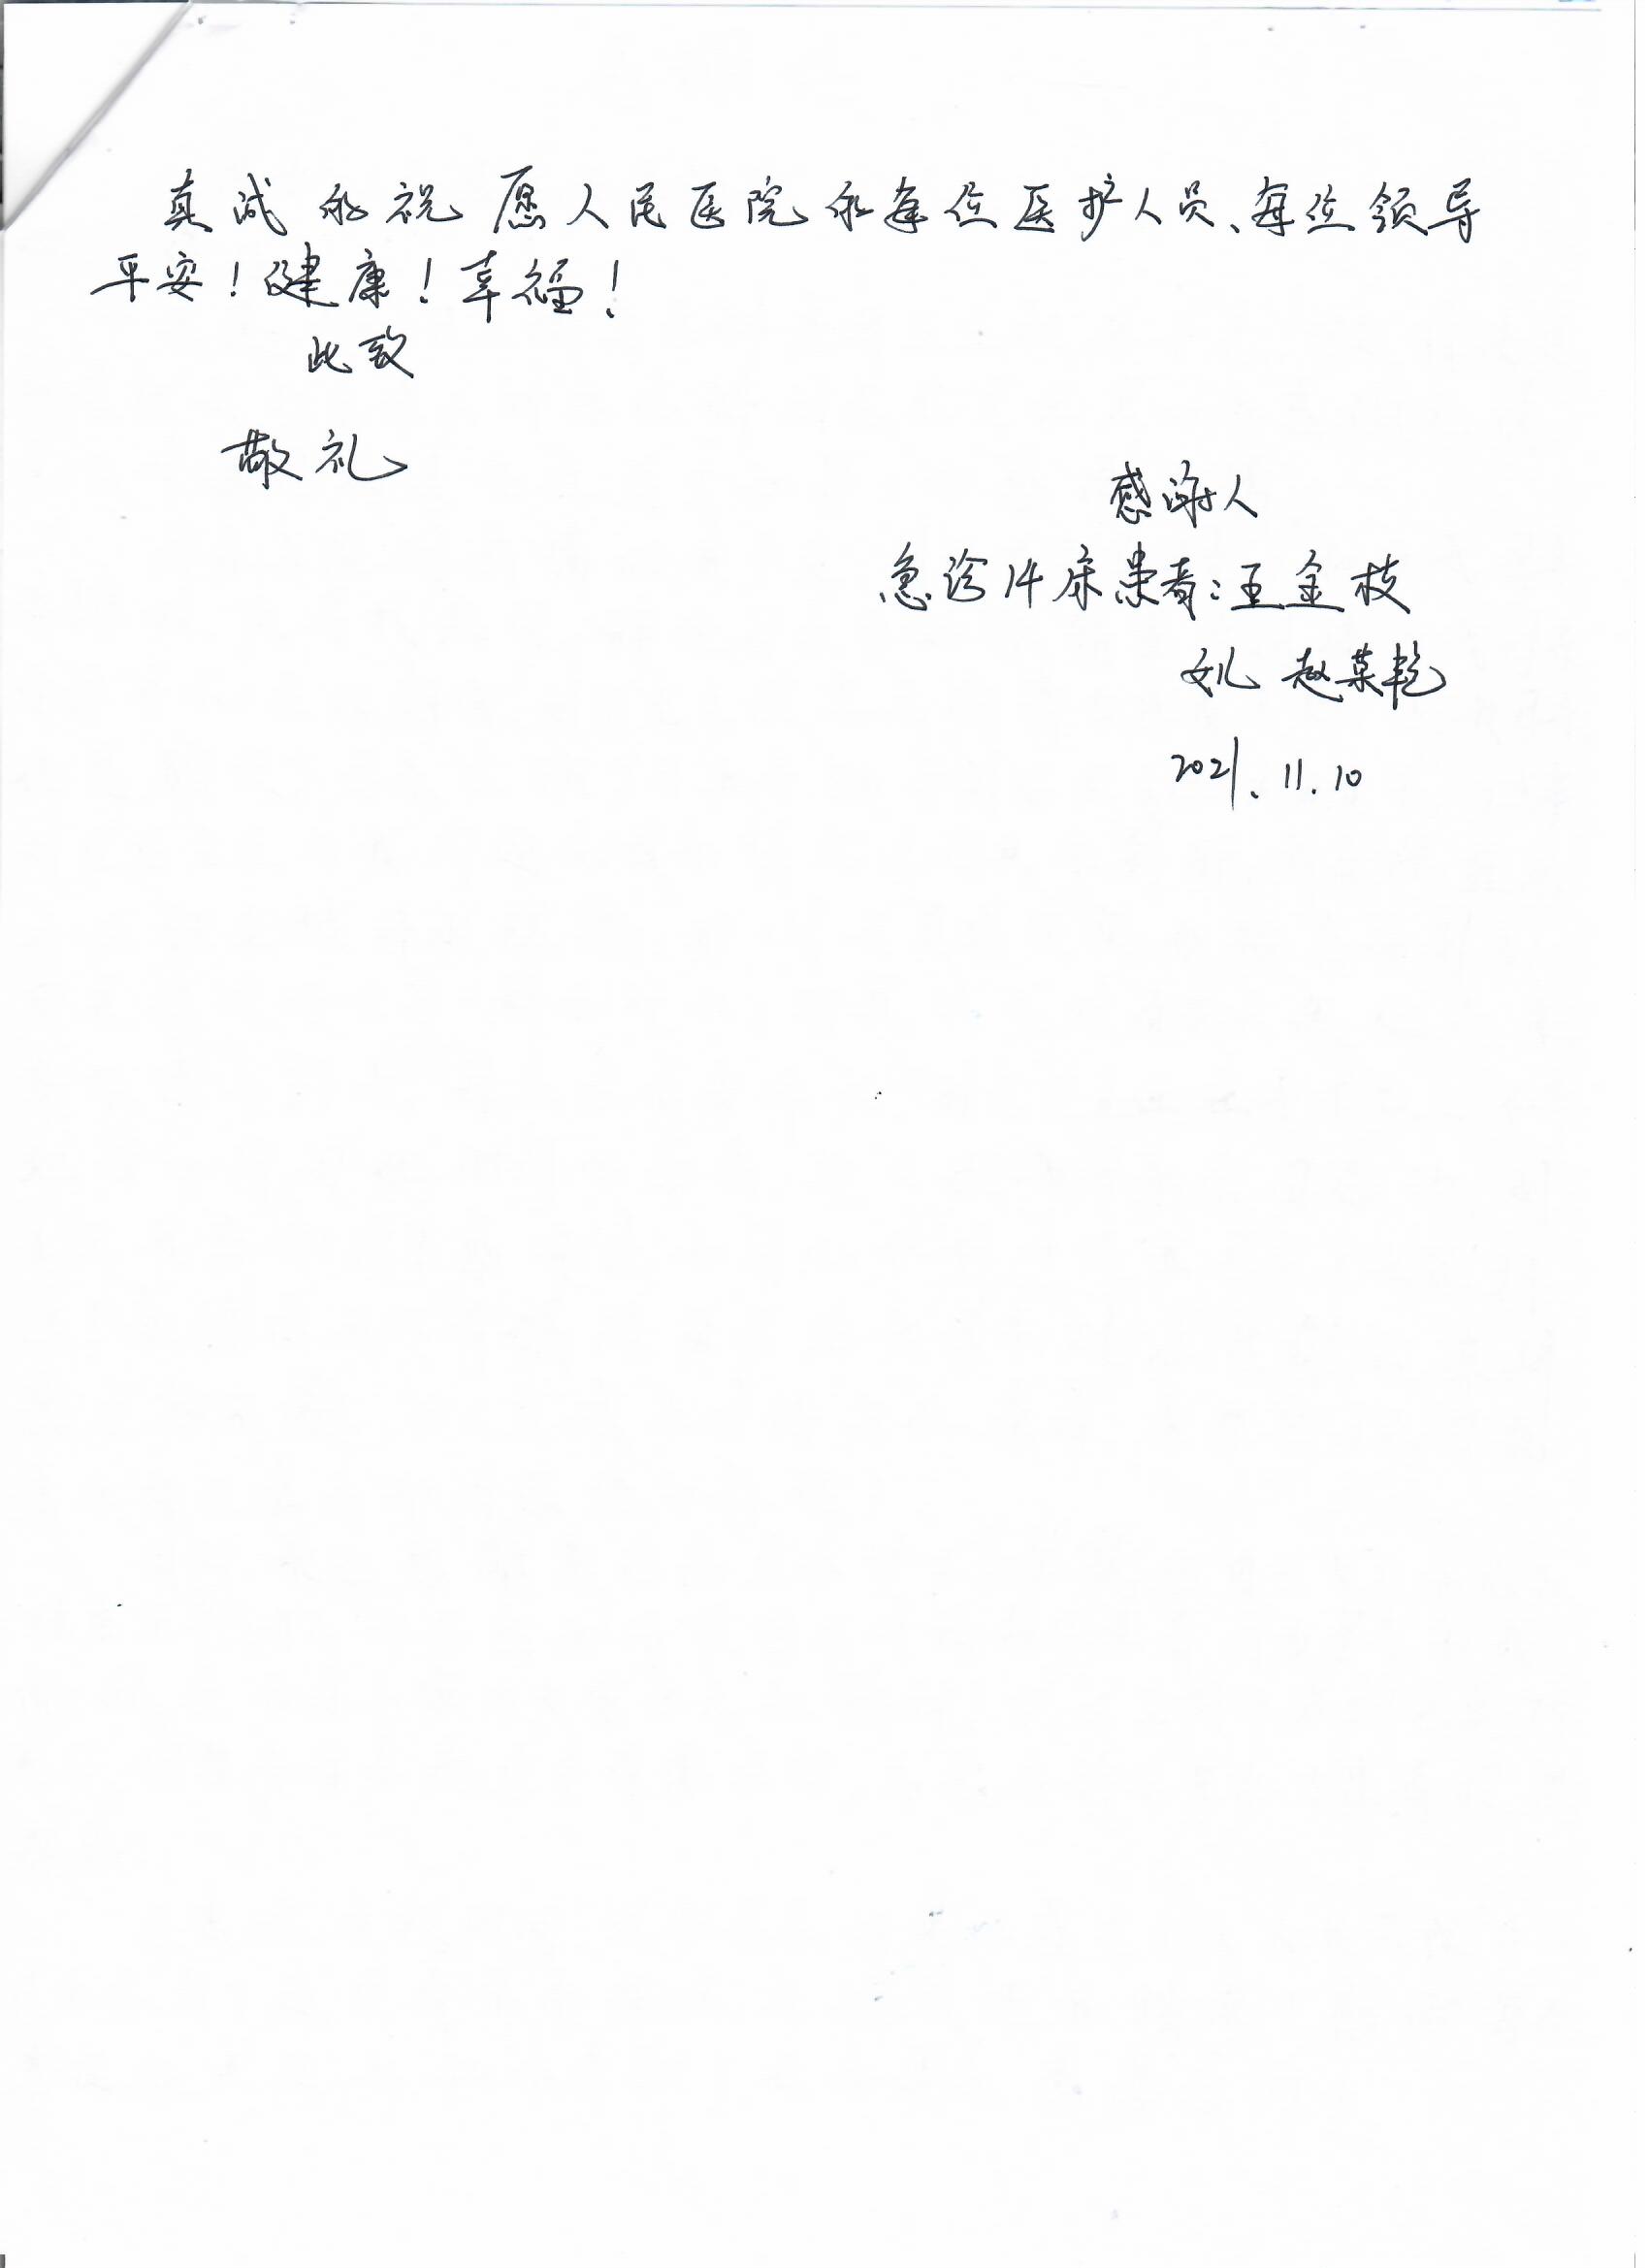 真诚的祝愿人民医院的每位医护人员、每位领导
平安！健康！幸福！
此致
敬礼
感谢人
急诊14床患者：王金枝
女儿 赵菜艳
2021.11.10